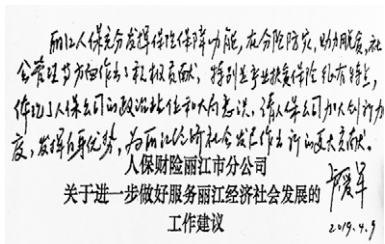 丽江人保充分发挥保险保障功能,在分险防灾,助力脱贫,社
会管理等方面作出了积极贡献。特别是产业扶贫保险很有特点,
体现了人保公司的政治站位和大局意识。请人保公司加大创新力
度,发挥自身优势,为丽江经济社会发展作出新的更大贡献。
人保财险丽江市分公司
关于进一步做好服务丽江经济社会发展的
工作建议
2019.4.9